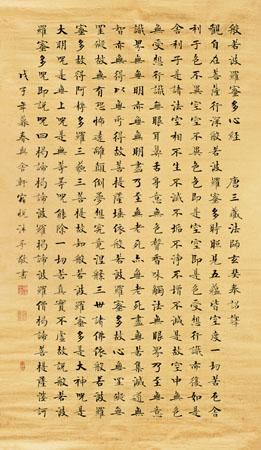 般若波羅蜜多心經 唐三藏法師玄奘奉詔譯
觀自在菩薩行深般若波羅蜜多時照見五蘊皆空度一切苦厄舍
利子色不異空空不異色色即是空空即是色受想行識亦復如是
舍利子是諸法空相不生不滅不垢不淨不增不減是故空中無色
無受想行識無眼耳鼻舌身意無色聲香味觸法無眼界乃至無意
識界無無明亦無無明盡乃至無老死亦無老死盡無苦集滅道無
智亦無得以無所得故菩提薩埵依般若波羅蜜多故心無罣礙無
罣礙故無有恐怖遠離顛倒夢想究竟涅槃三世諸佛依般若波
羅蜜多故得阿耨多羅三藐三菩提故知般若波羅蜜多是大神咒是
大明咒是無上咒是無等等咒能除一切苦真實不虛故說般若波
羅蜜多咒即說咒曰揭諦揭諦波羅揭諦波羅僧揭諦菩提薩婆訶
戊子年暮春 沐手敬書